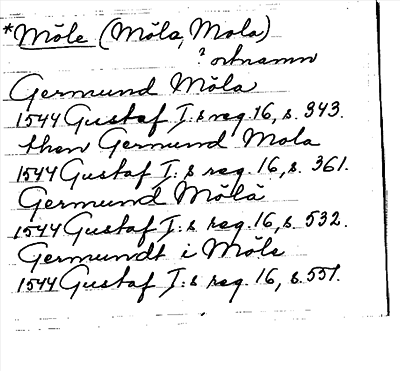 *Måle (Måla, Mola)
? ortnamn
Germund Måla
1544 Gustaf I:s reg. 16, s. 343.
then Germund Mola
1544 Gustaf I:s reg. 16, s. 361.
Germund Målā
1544 Gustaf I:s reg. 16, s. 532.
Germundt i Måle
1544 Gustaf I:s reg. 16, s. 551.